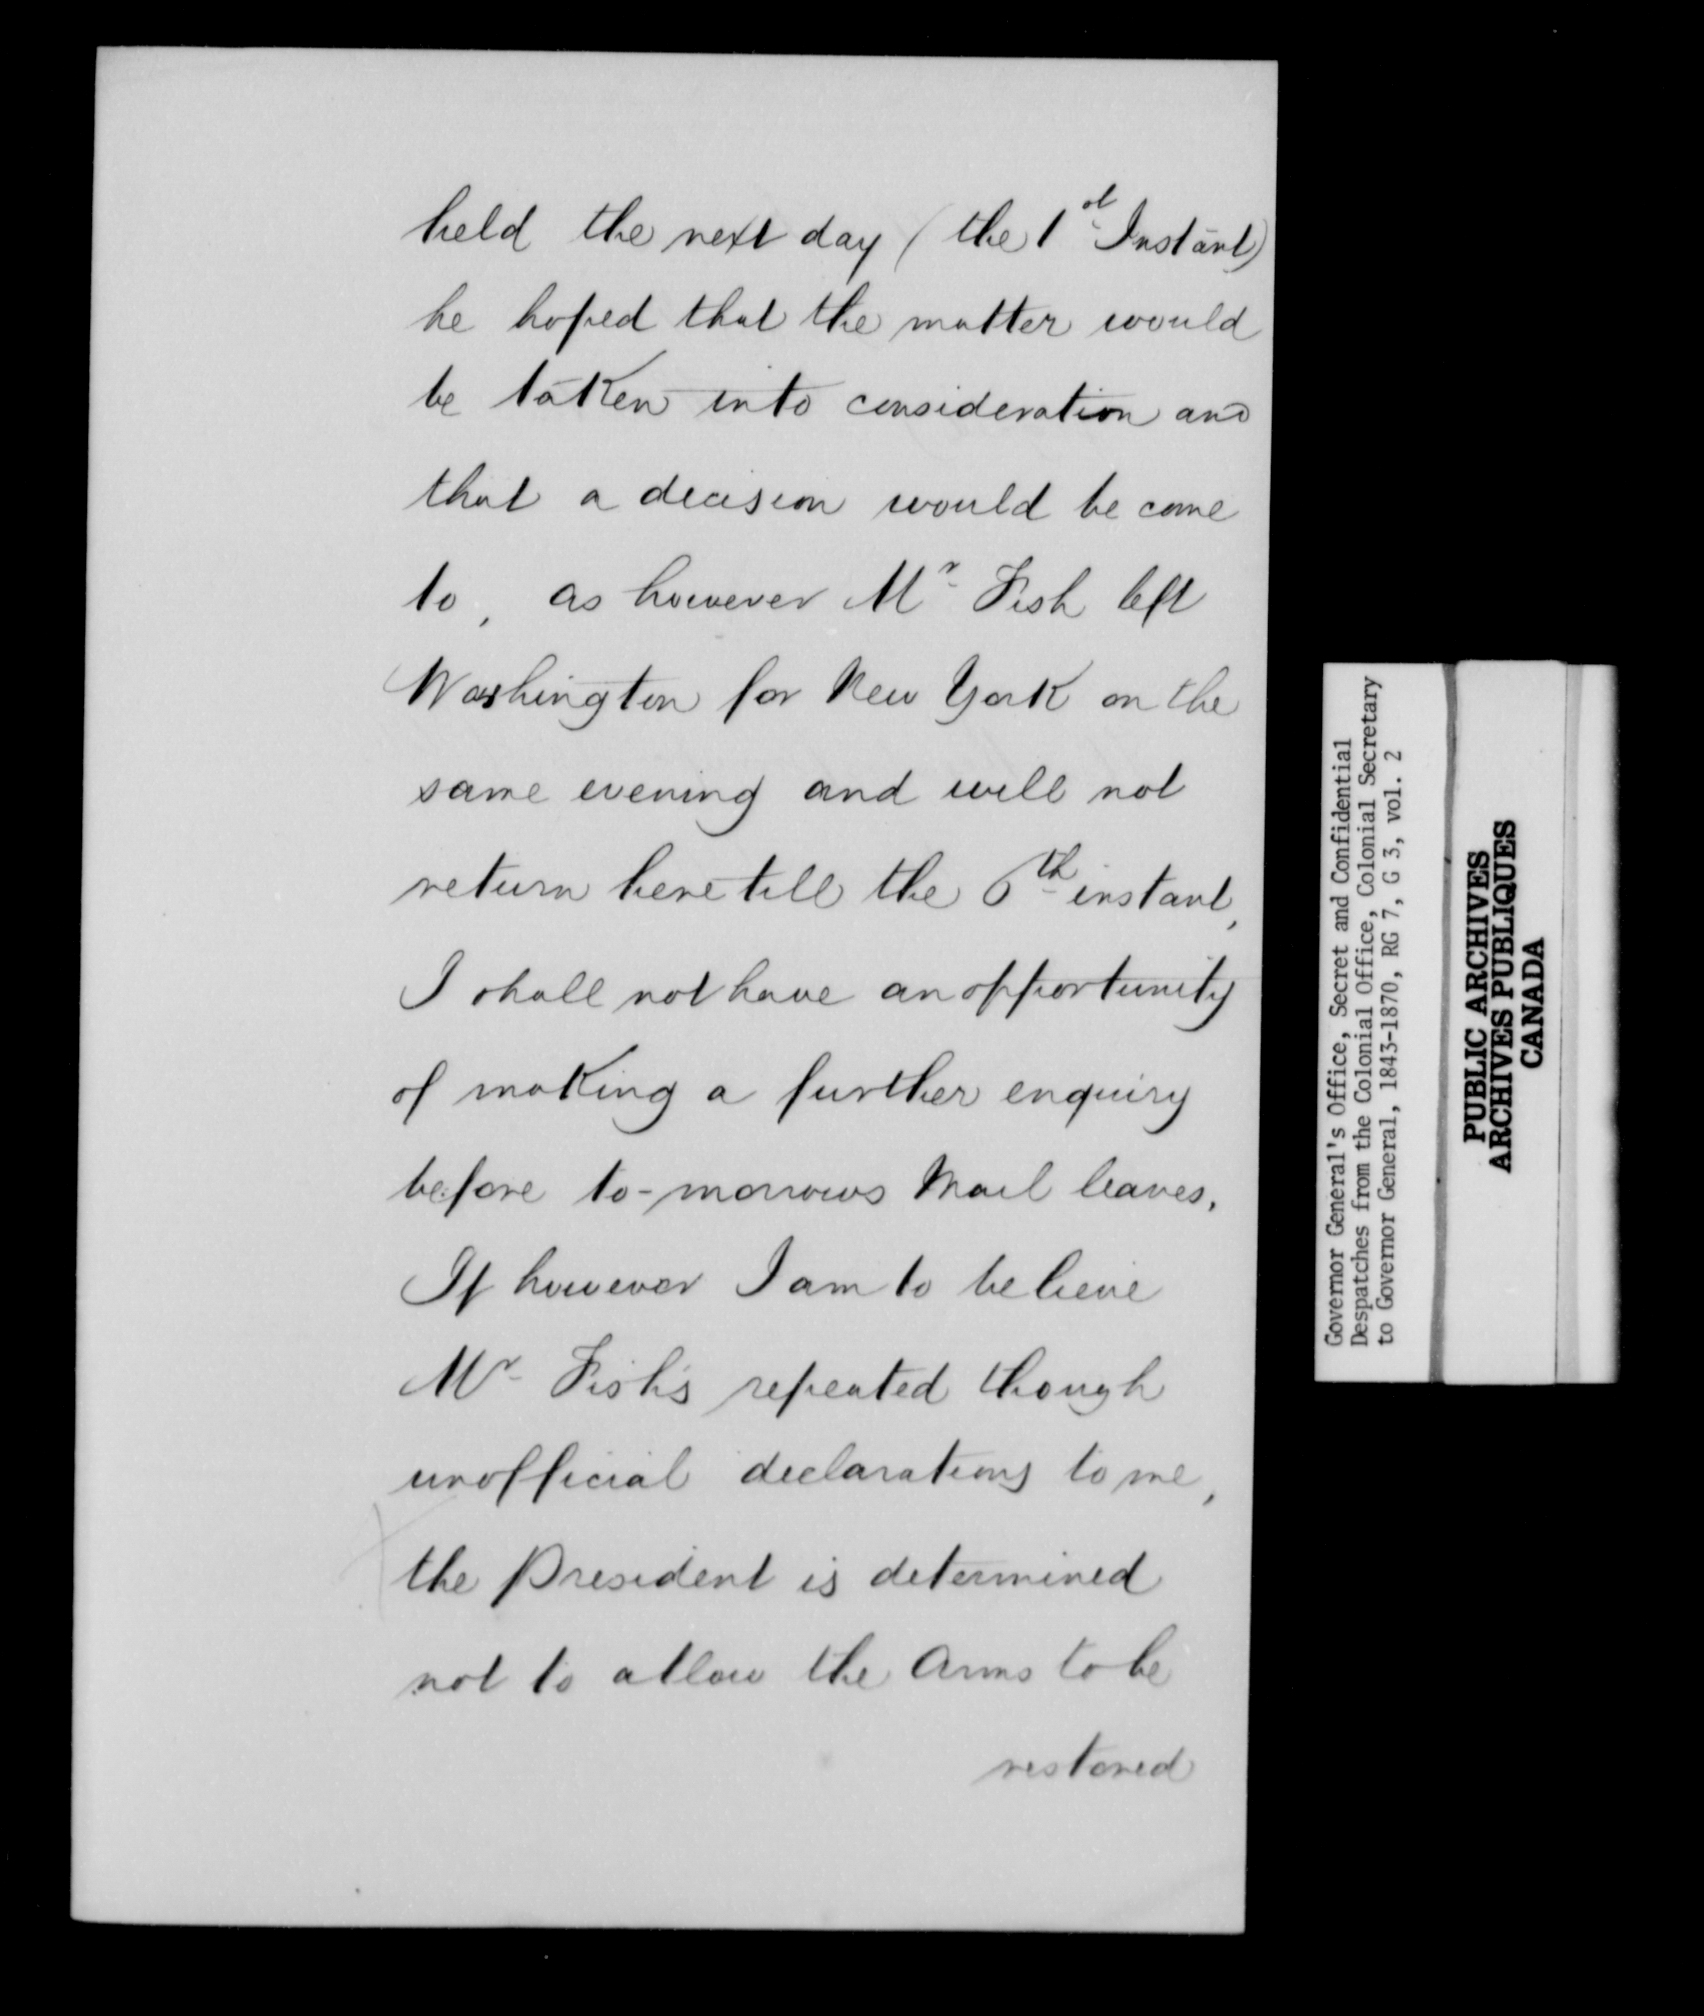 held the next day (the 1st Instant)
he hoped that the matter would
be taken into consideration and
that a decision would be come
to, as however Mr Fish left
Washington for New York on the
same evening and will not
return here till the 6th instant,
I shall not have an opportunity
of making a further enquiry
before to-morrows Mail leaves.
If however I am to believe
Mr Fish's repeated though
unofficial declarations to me,
the President is determined
not to allow the Arms to be
restored
Governor General's Office, Secret and Confidential
Despatches from the Colonial Office, Colonial Secretary
to Governor General, 1843-1870, RG 7, G 3, vol. 2
PUBLIC ARCHIVES
ARCHIVES PUBLIQUES
CANADA